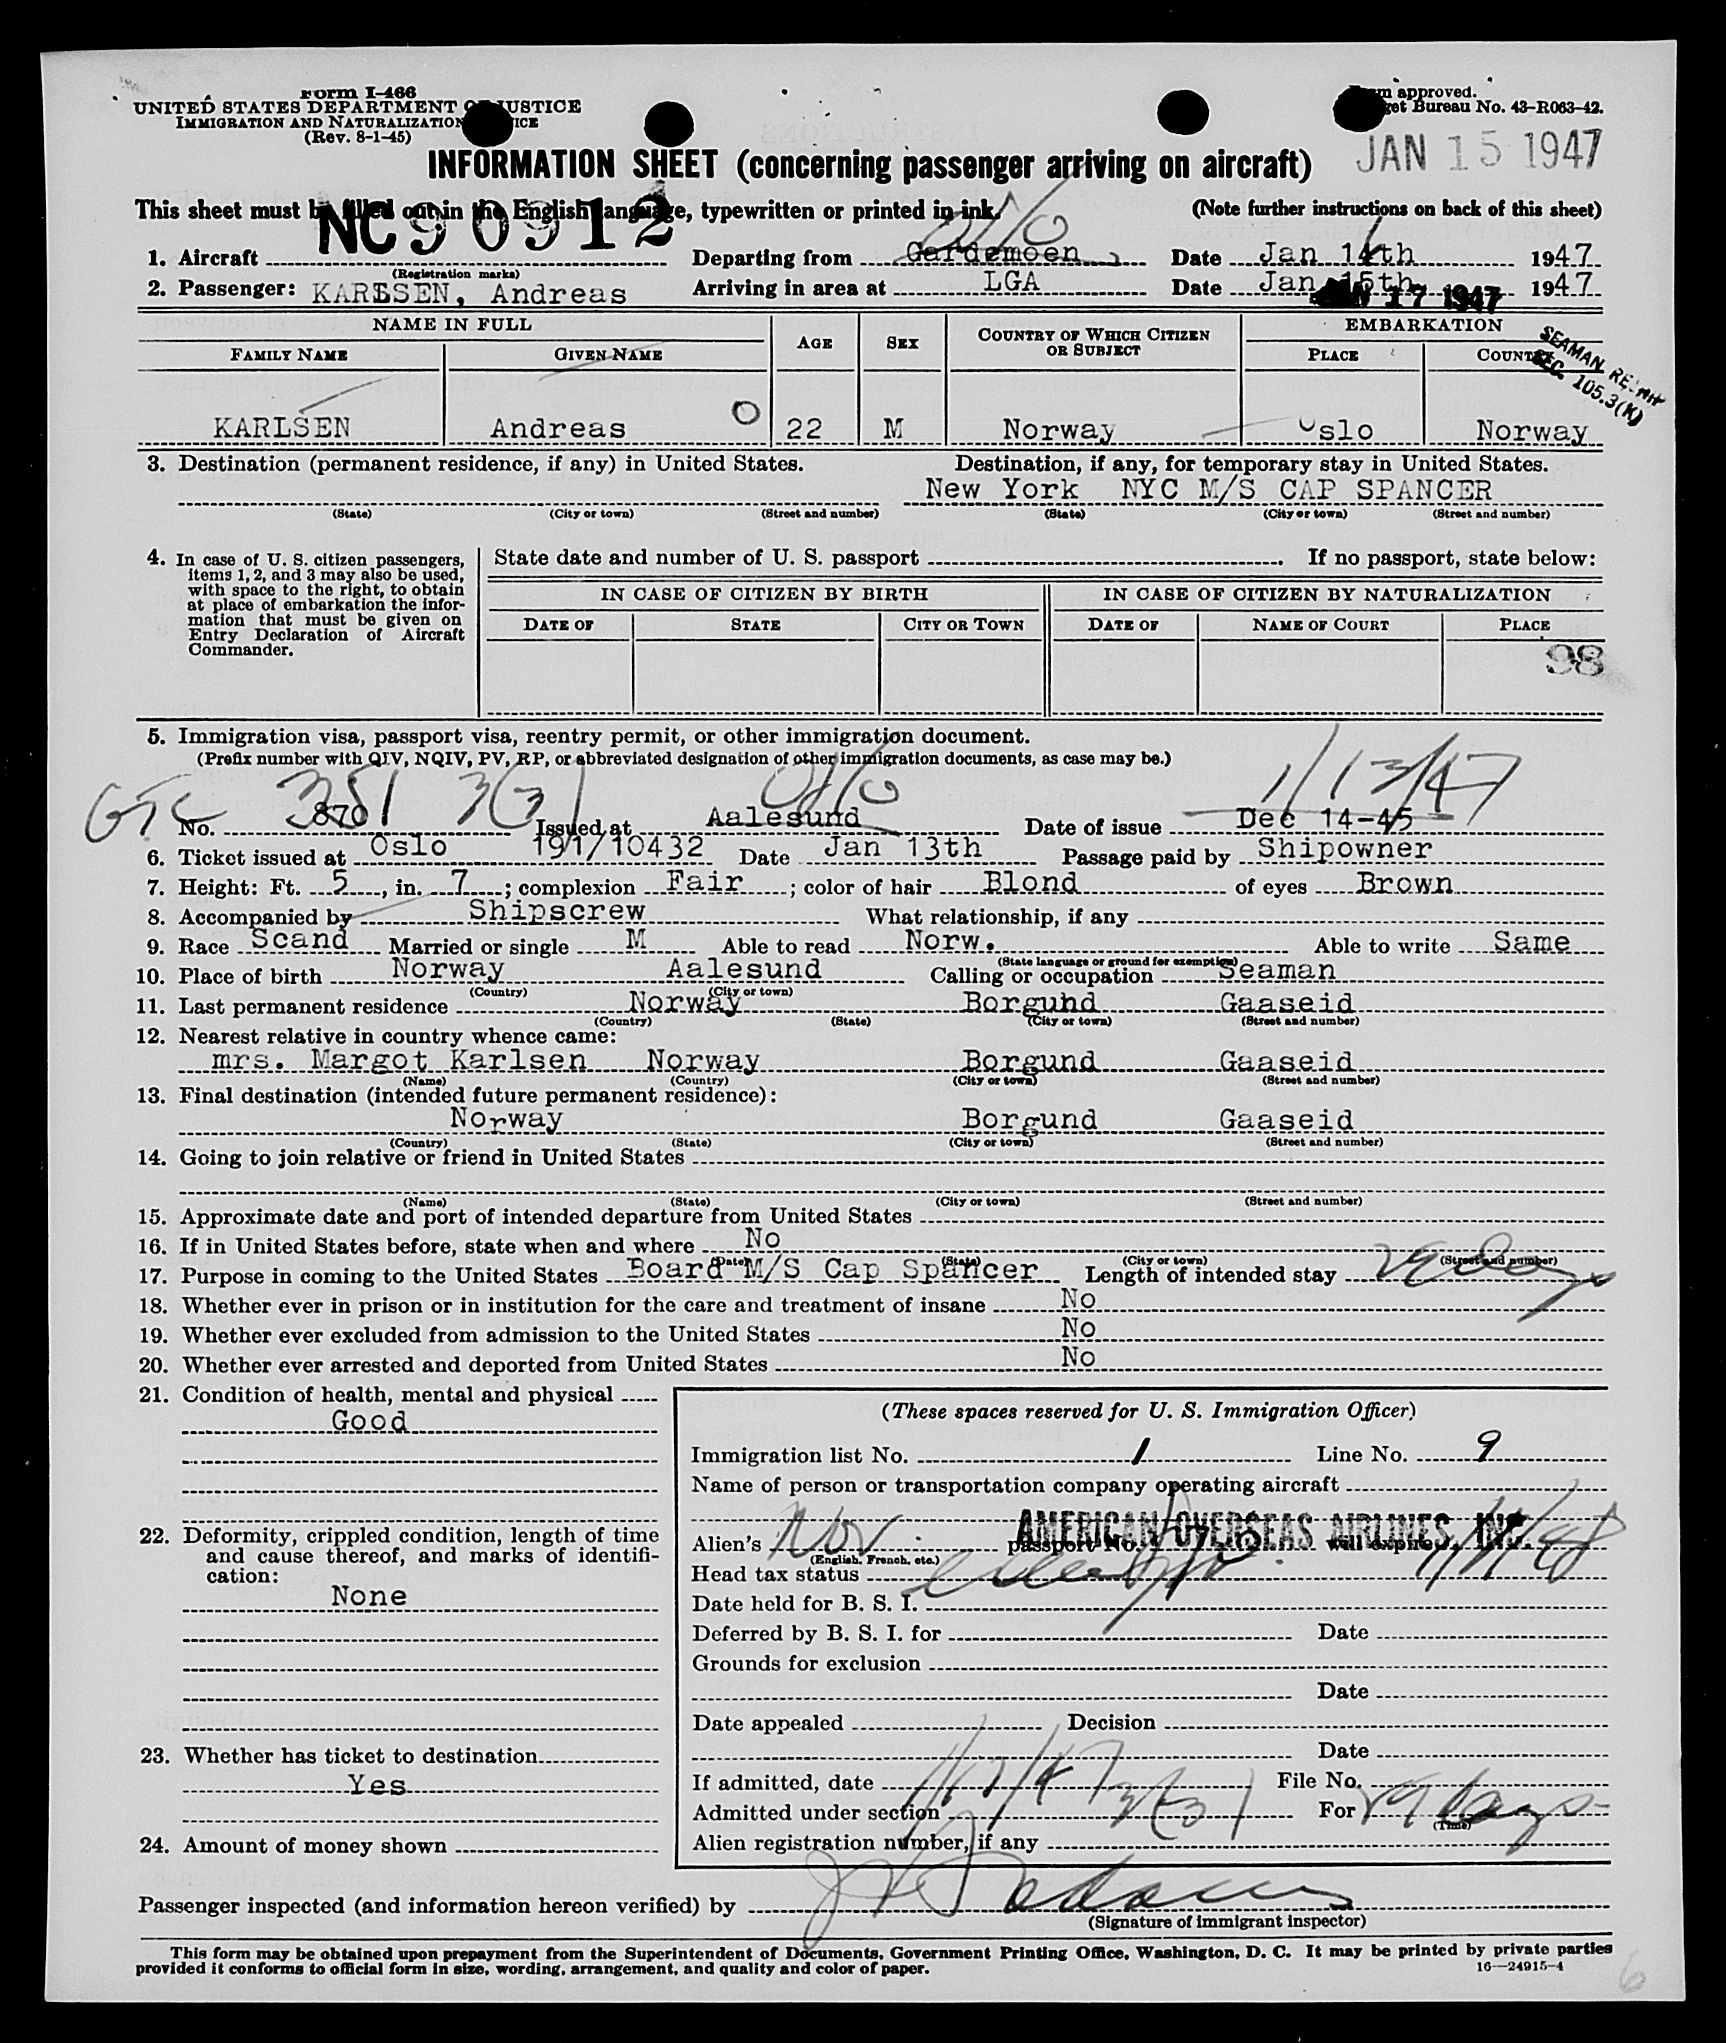 Form I-466
UNITED STATES DEPARTMENT OF JUSTICE
IMMIGRATION AND NATURALIZATION
(Rev. 8-1-45)
approved.
Bureau No. 43-R063-42.
JAN 15 1947
INFORMATION SHEET (concerning passenger arriving on aircraft)
This sheet must be filled out in the English language, typewritten or printed in ink.
(Note further instructions on back of this sheet)
NC90912
1. Aircraft
(Registration marks)
Departing from Gardemoen Date Jan 14th 1947
2. Passenger: KARLSEN, Andreas Arriving in area at LGA Date Jan 15th 1947
JAN 17 1947
NAME IN FULL
FAMILY NAME GIVEN NAME AGE SEX COUNTRY OF WHICH CITIZEN OR SUBJECT EMBARKATION PLACE COUNTRY
SEAMAN
SEC. 105.3(K)
KARLSEN Andreas O 22 M Norway Oslo Norway
3. Destination (permanent residence, if any) in United States. Destination, if any, for temporary stay in United States.
New York NYC M/S CAP SPANCER
(State) (City or town) (Street and number) (State) (City or town) (Street and number)
4. In case of U. S. citizen passengers, items 1, 2, and 3 may also be used, with space to the right, to obtain at place of embarkation the information that must be given on Entry Declaration of Aircraft Commander.
State date and number of U. S. passport . If no passport, state below:
IN CASE OF CITIZEN BY BIRTH IN CASE OF CITIZEN BY NATURALIZATION
DATE OF STATE CITY OR TOWN DATE OF NAME OF COURT PLACE
98
5. Immigration visa, passport visa, reentry permit, or other immigration document.
(Prefix number with QIV, NQIV, PV, RP, or abbreviated designation of other immigration documents, as case may be.)
351 3(3) Oslo 1/13/47
No. 870 Issued at Aalesund Date of issue Dec 14-45
6. Ticket issued at Oslo 191/10432 Date Jan 13th Passage paid by Shipowner
7. Height: Ft. 5, in. 7; complexion Fair; color of hair Blond of eyes Brown
8. Accompanied by Shipscrew What relationship, if any
9. Race Scand Married or single M Able to read Norw. Able to write Same
(State language or ground for exemption)
10. Place of birth Norway Aalesund Calling or occupation Seaman
(Country) (City or town)
11. Last permanent residence Norway Borgund Gaaseid
(Country) (State) (City or town) (Street and number)
12. Nearest relative in country whence came:
mrs. Margot Karlsen Norway Borgund Gaaseid
(Name) (Country) (City or town) (Street and number)
13. Final destination (intended future permanent residence):
Norway Borgund Gaaseid
(Country) (State) (City or town) (Street and number)
14. Going to join relative or friend in United States
(Name) (State) (City or town) (Street and number)
15. Approximate date and port of intended departure from United States
16. If in United States before, state when and where No
(Date) (State) (City or town) (Street and number)
17. Purpose in coming to the United States Board M/S Cap Spancer Length of intended stay 29 days
18. Whether ever in prison or in institution for the care and treatment of insane No
19. Whether ever excluded from admission to the United States No
20. Whether ever arrested and deported from United States No
21. Condition of health, mental and physical
Good
22. Deformity, crippled condition, length of time and cause thereof, and marks of identification:
None
23. Whether has ticket to destination
Yes
24. Amount of money shown
(These spaces reserved for U. S. Immigration Officer)
Immigration list No. 1 Line No. 9
Name of person or transportation company operating aircraft
AMERICAN OVERSEAS AIRLINES, INC.
Alien's Nor passport No. will expire
(English, French, etc.)
Head tax status
Date held for B. S. I.
Deferred by B. S. I. for Date
Grounds for exclusion
Date
Date appealed Decision
Date
If admitted, date 1/17/47 File No.
Admitted under section 3(3) For 29 days
(Time)
Alien registration number, if any
Passenger inspected (and information hereon verified) by
(Signature of immigrant inspector)
This form may be obtained upon prepayment from the Superintendent of Documents, Government Printing Office, Washington, D. C. It may be printed by private parties
provided it conforms to official form in size, wording, arrangement, and quality and color of paper.
16—24915-4
6